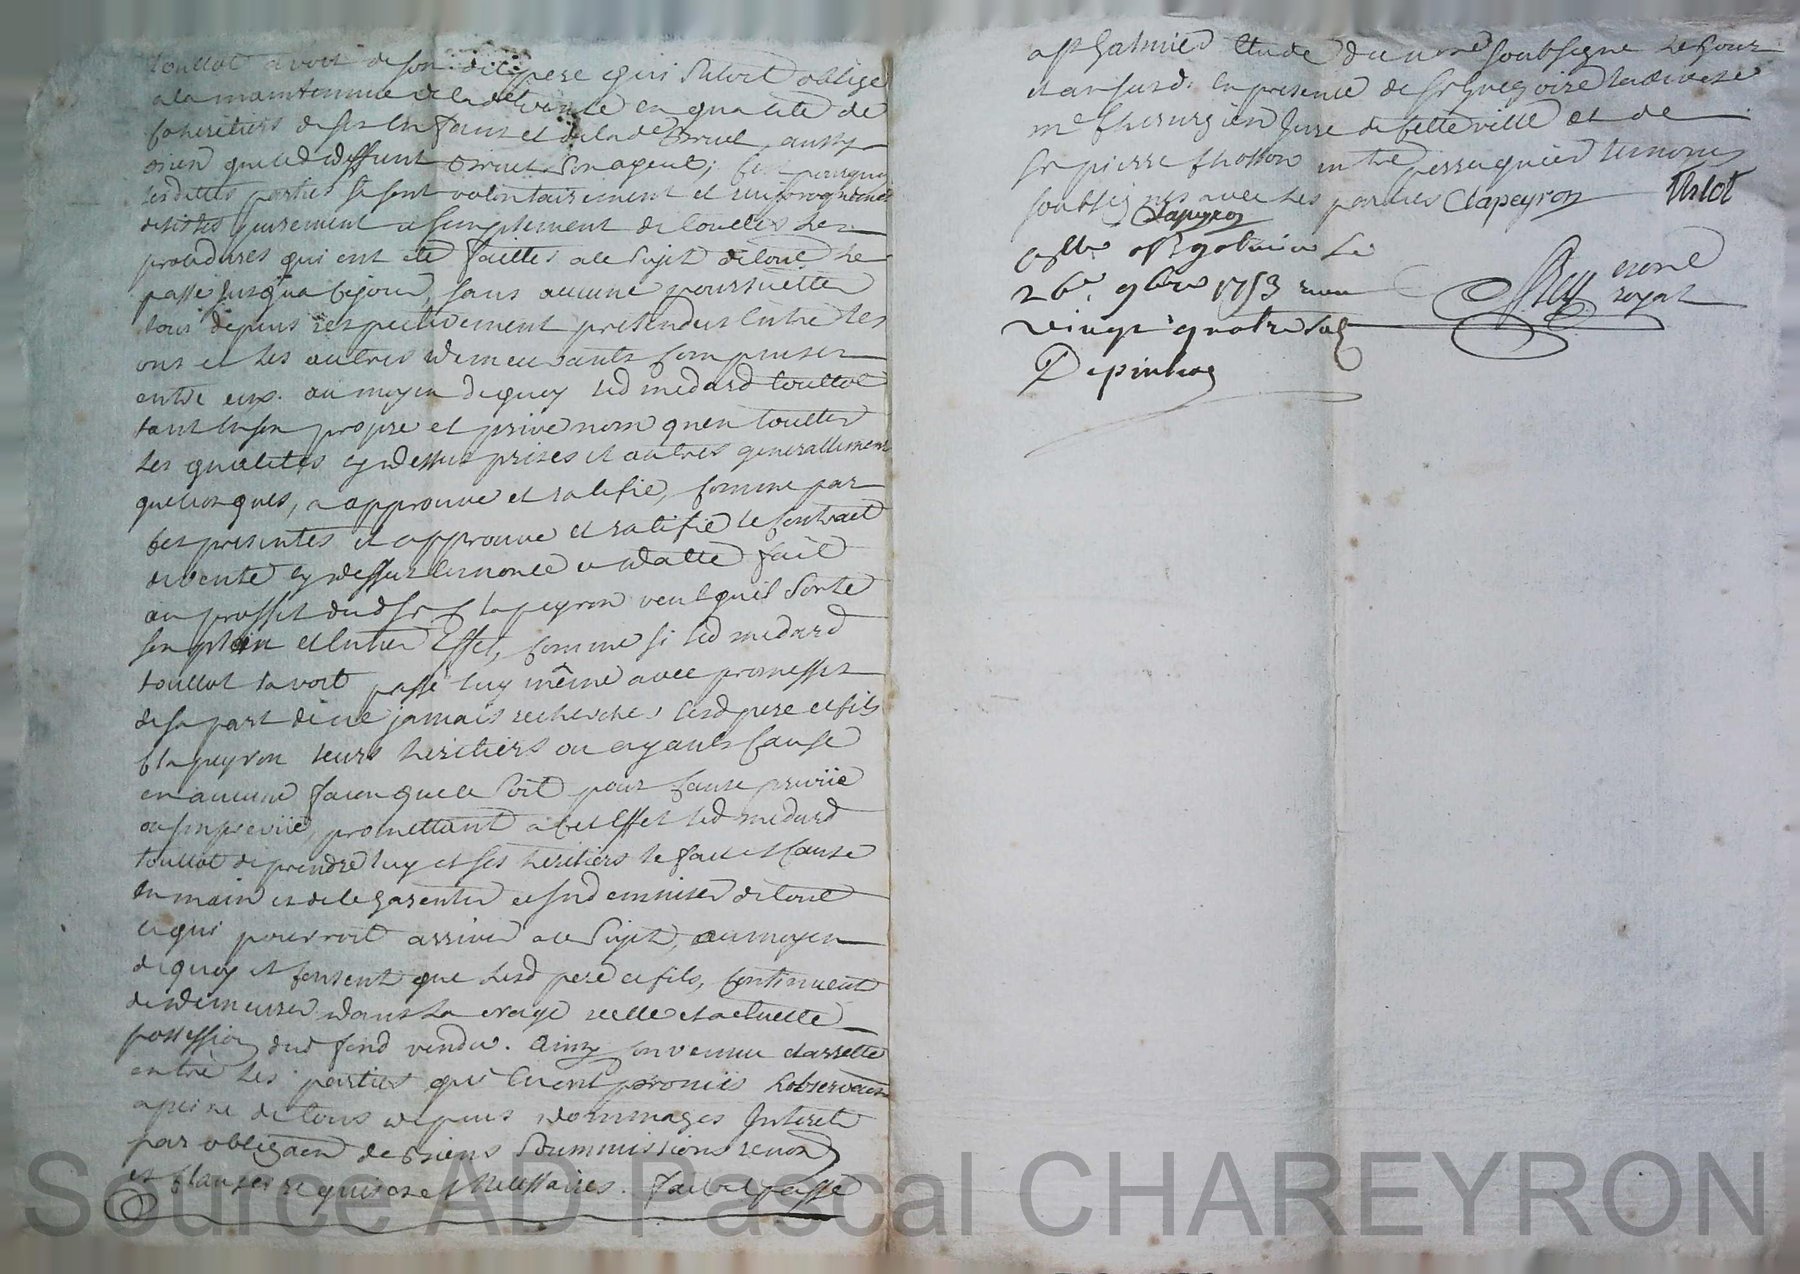 touttot avoit de son dit pere qui s'etoit obligé
a la maintenue de lade vente en qualité de
coheritiers de ses enfans et de lade Bruel, aussy
bien que led deffunt Bruel son ageul; c'est pourquoy
lesdittes parties se sont volontairement et
desistés purement et simplement de touttes les
procedures qui ont eté faittes a ce sujet de tout le
passé jusqua ce jour, sans aucune poursuitte
tous depens respectivement pretendus entre les
uns et les autres demeurants compensez
entre eux. au moyen de quoy led medard touttot
tant en son propre et privé nom qu'en touttes
les qualités cy dessus prises et autres generallement
quelconques, a approuvé et ratifié, comme par
ces presentes il approuve et ratifie le contract
de vente cy dessus enoncé et datté fait
au proffit dud sr Clapeyron veut qu'il sorte
son plein et entier effet, comme si led medard
touttot l'avoit passé luy même avec promesses
de sa part de ne jamais rechercher lesd pere et fils
Clapeyron leurs heritiers ou ayants cause
en aucune facon que ce soit pour cause previie
ou impreviie, promettant a cet effet led medard
touttot de prendre luy et ses heritiers le fait et cause
en main et de le garentir et indemniser de tout
ce qui pourroit arriver a ce sujet, au moyen
de quoy il consent que lesd pere et fils, continuent
de demeurer dans la vraye reelle et actuelle
possession dud fond vendu. Ainsy convenu et arretté
entre les parties qui l'uont promis l'observer
a peine de tous depens dommages Interets
par obligaon de biens soummissions renon
et clauses requises et necessaires. fait et passé
a st Galmier etude du nre soubsigné le jour
et an susd. En presence de sr gregoire
me chirurgien Juré de cette ville et de
sr pierre maitre perruquier temoins
soubsignes avec les parties Clapeyron
Clapeyron
Cllé a st galmier le
26e 9bre 1753 recu
vingt quatre sols
Depinhac
royal
Source AD Pascal CHAREYRON